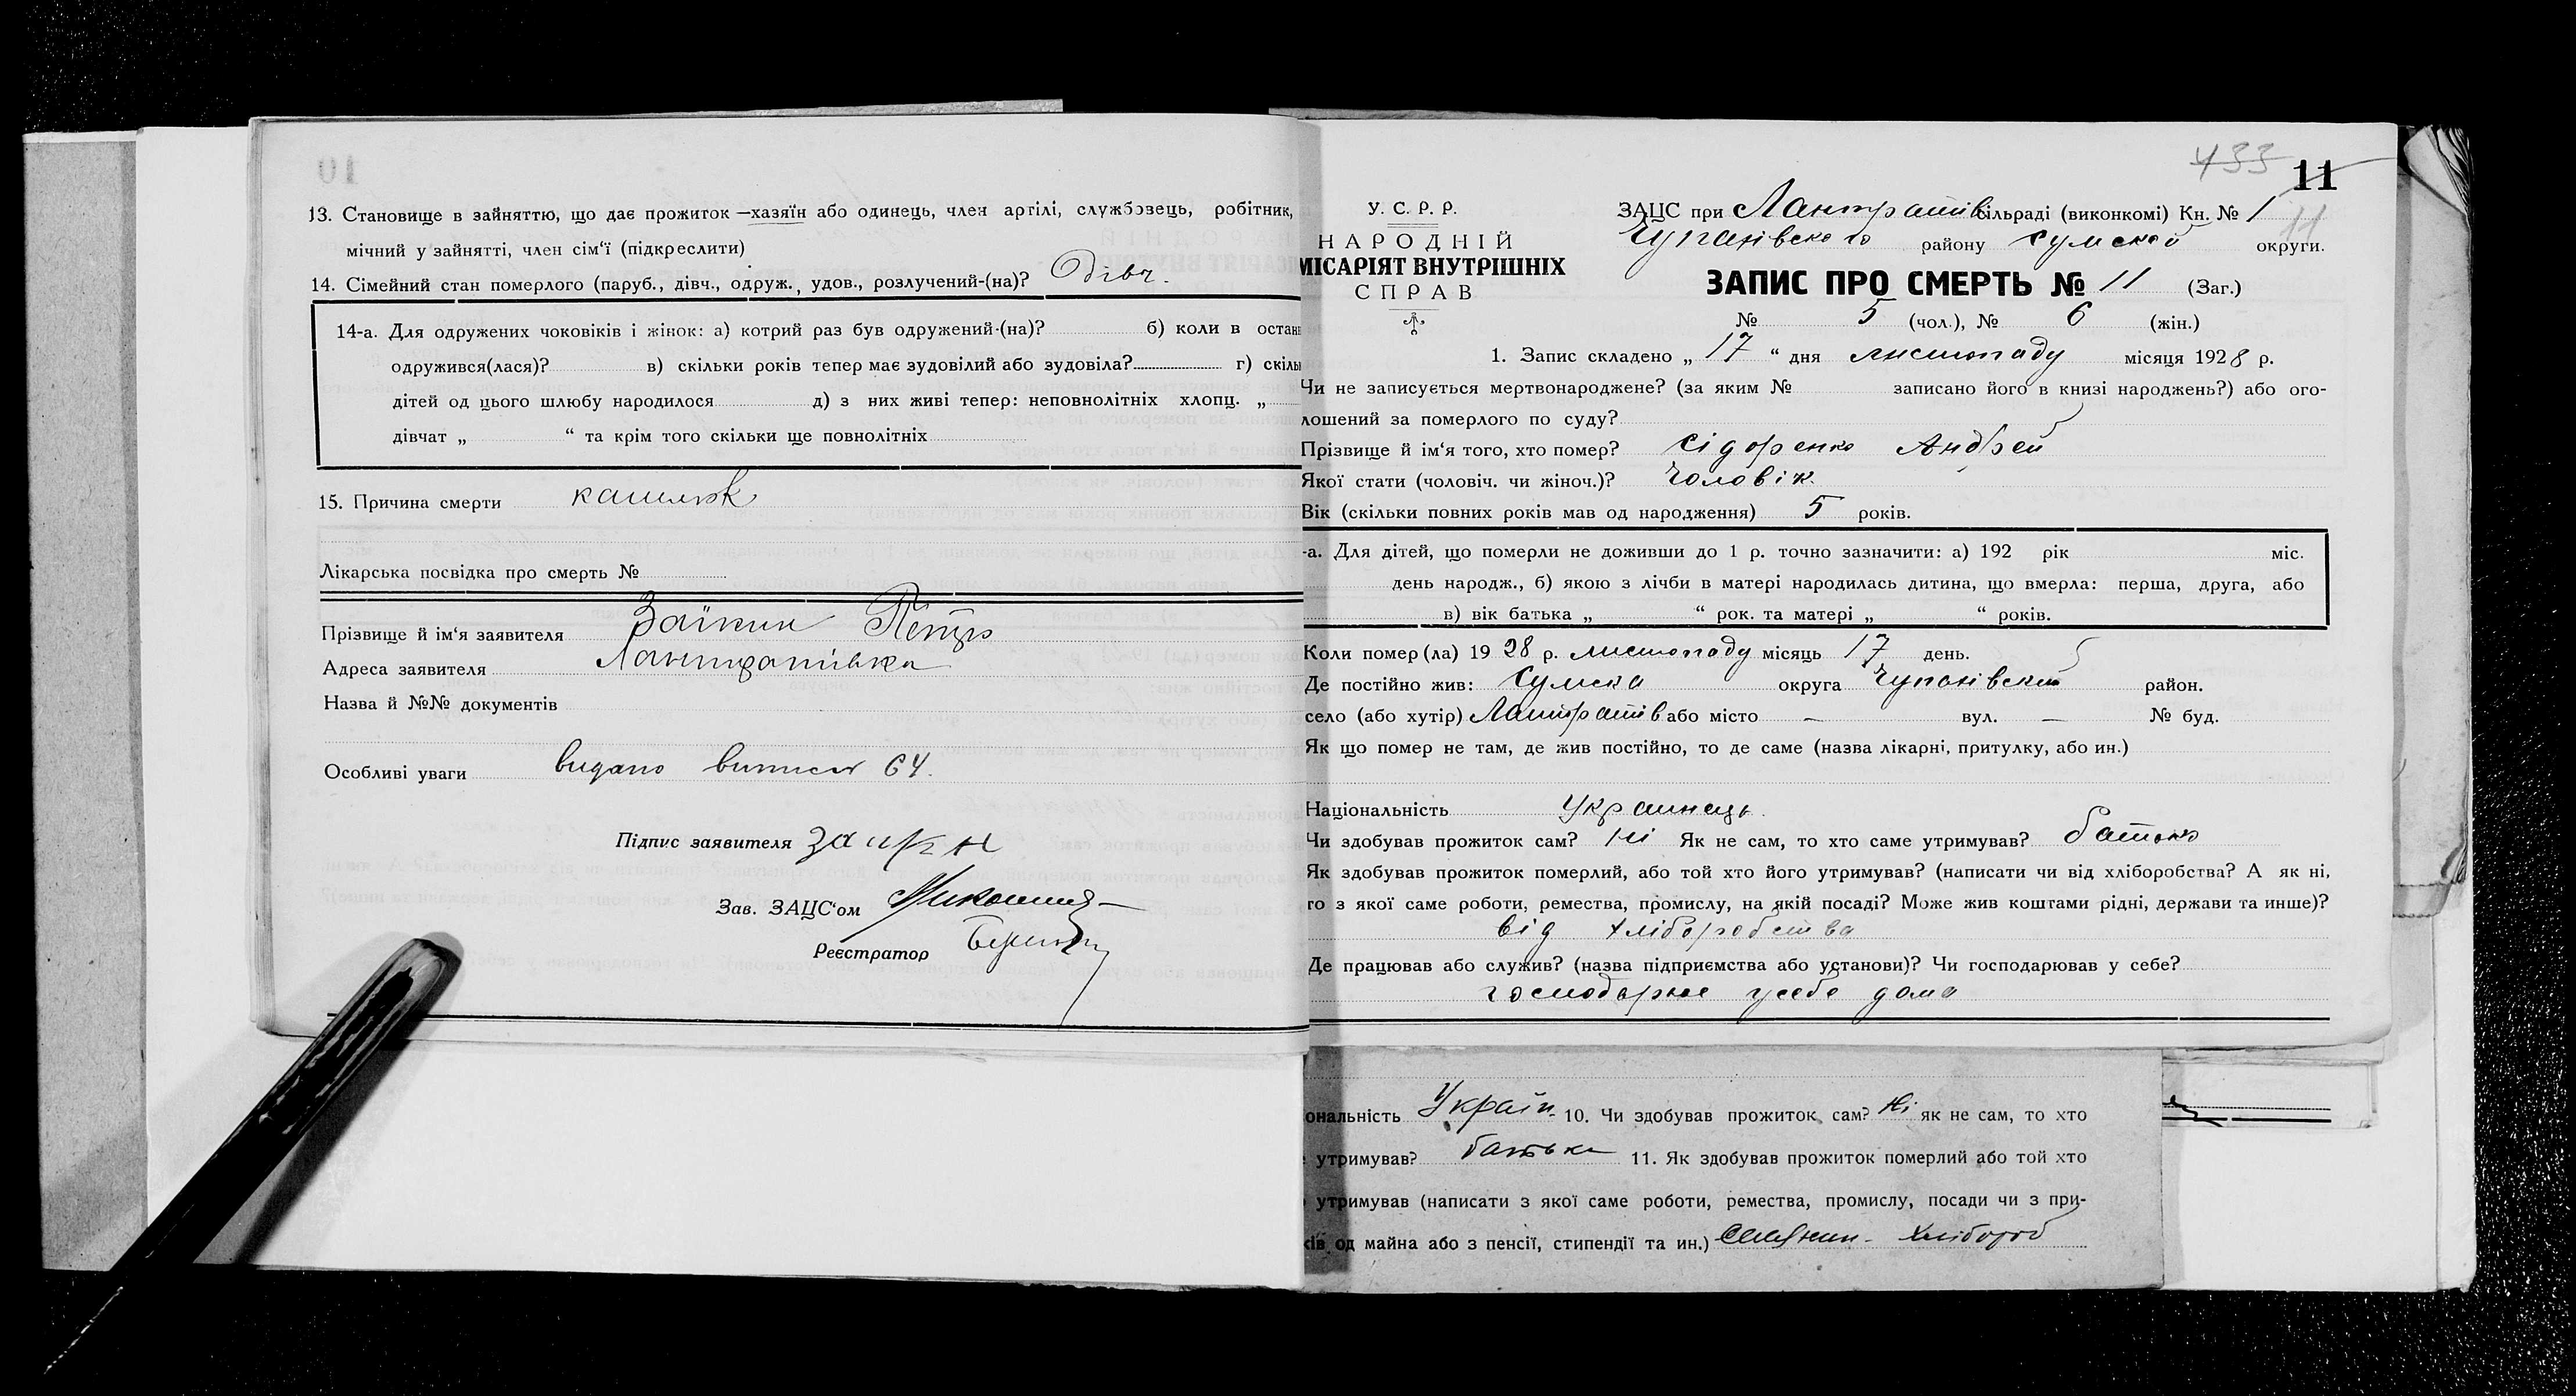 10
13. Становище в зайняттю, що дає прожиток —хазяїн або одинець, член артілі, службовець, робітник,
мічний у зайнятті, член сім'ї (підкреслити)
14. Сімейний стан померлого (паруб., дівч., одруж., удов., розлучений-(на)? Дівч.
14-а. Для одружених чоковіків і жінок: а) котрий раз був одружений-(на)? б) коли в остан
одружився(лася)? в) скільки років тепер має зудовілий або зудовіла? г) скіль
дітей од цього шлюбу народилося д) з них живі тепер: неповнолітніх хлопц. „
дівчат „ “ та крім того скільки ще повнолітніх
15. Причина смерти кашлюк
Лікарська посвідка про смерть №
Прізвище й ім'я заявителя Заїкин Петро
Адреса заявителя Лантратівка
Назва й №№ документів
Особливі уваги видано виписа 64.
Підпис заявителя Заикн
Зав. ЗАЦС'ом
Реєстратор
433
11
У. С. Р. Р.
НАРОДНІЙ
МІСАРІЯТ ВНУТРІШНІХ
СПРАВ
ЗАЦС при Лантратів сільраді (виконкомі) Кн. № 1
11
Чупахівского району сумской округи.
ЗАПИС ПРО СМЕРТЬ № 11 (Заг.)
№ 5 (чол.), № 6 (жін.)
1. Запис складено „ 17 “ дня листопаду місяця 1928 р.
Чи не записується мертвонароджене? (за яким № записано його в книзі народжень?) або ого-
лошений за померлого по суду?
Прізвище й ім'я того, хто помер? Сідоренко Андрей
Якої стати (чоловіч. чи жіноч.)? Чоловік.
Вік (скільки повних років мав од народження) 5 років.
-а. Для дітей, що померли не доживши до 1 р. точно зазначити: а) 192 рік міс.
день народж., б) якою з лічби в матері народилась дитина, що вмерла: перша, друга, або
в) вік батька „ “ рок. та матері „ “ років.
Коли помер(ла) 1928 р. листопаду місяць 17 день.
Де постійно жив: Сумска округа Чупахівский район.
село (або хутір) Лантратів або місто — вул. — № буд.
Як що помер не там, де жив постійно, то де саме (назва лікарні, притулку, або ин.)
Національність Украинець.
Чи здобував прожиток сам? Ні Як не сам, то хто саме утримував? батько
Як здобував прожиток померлий, або той хто його утримував? (написати чи від хліборобства? А як ні,
то з якої саме роботи, ремества, промислу, на якій посаді? Може жив коштами рідні, держави та инше)?
від хліборобства
Де працював або служив? (назва підприємства або установи)? Чи господарював у себе?
господарює усебе дома
ональність Україн. 10. Чи здобував прожиток сам? Ні як не сам, то хто
утримував? батьки 11. Як здобував прожиток померлий або той хто
утримував (написати з якої саме роботи, ремества, промислу, посади чи з при-
ків од майна або з пенсії, стипендії та ин.) Селянин - хлібороб